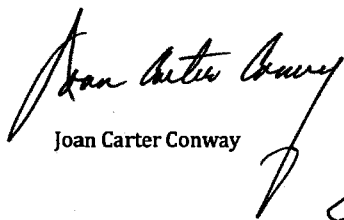 Joan Carter Conway
Joan Carter Conway